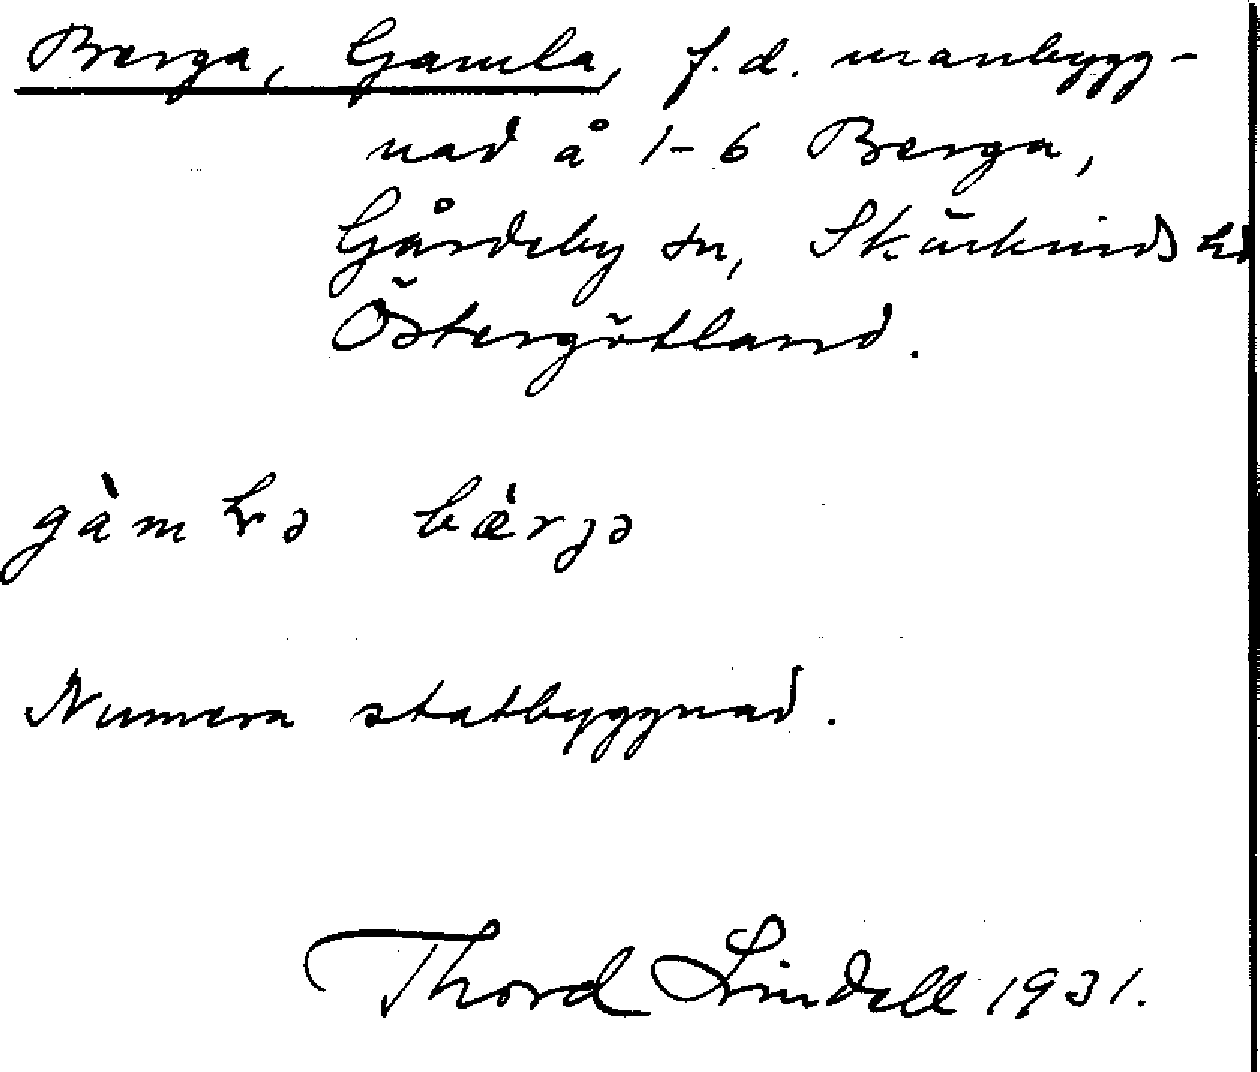 Berga, Gamla, f.d. manbygg-
nad å 1-6 Berga,
Gårdeby sn, Skärkinds hd
Östergötland.
gàmɫə bærjə
Numera statbyggnad.
Thord Lindell 1931.